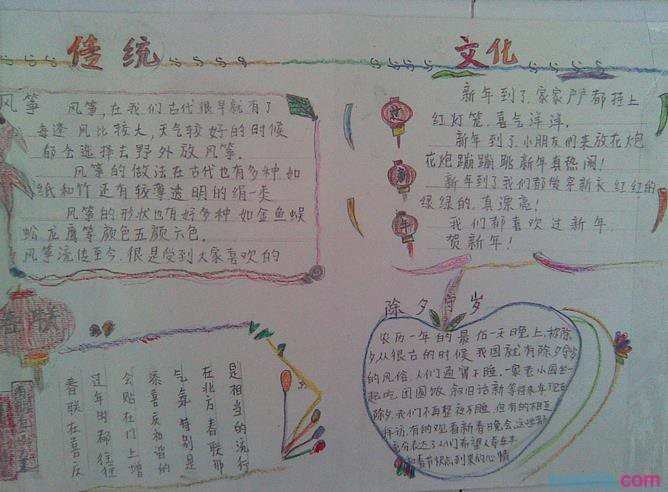 传统
文化
风筝
风筝,在我们古代很早就有了
每逢风比较大,天气较好的时候
都会选择去野外放风筝。
风筝的做法在古代也有多种,如
纸和竹还有较薄透明的绢一类
风筝的形状也有好多种 如金鱼蜈
蚣龙鹰等颜色五颜六色。
风筝流传至今.很是受到大家喜欢的
新年到了.家家户户都挂上
红灯笼.喜气洋洋.
新年到了小朋友们来放花炮
花炮蹦蹦跳新年真热闹!
新年到了我们都能穿新衣 红红的
绿绿的.真漂亮!
我们都喜欢过新年.
贺新年!
春联
春联在喜庆
过年时都往往
会贴在门上增
添喜庆和谐的
气氛 特别是
在北方 春联那
是相当的流行
除夕守岁
农历一年的最后一天晚上.称除
夕从很古的时候 我国就有除夕守岁
的风俗.人们通宵不睡.一家老小围坐一
起吃团圆饭.叙旧话新等待来年现在
除夕.我们不再整夜不睡.但有的相互
拜访.有的观看新春晚会.这些都
充分表达了人们希望人寿年丰
和春节快点到来的心情
com